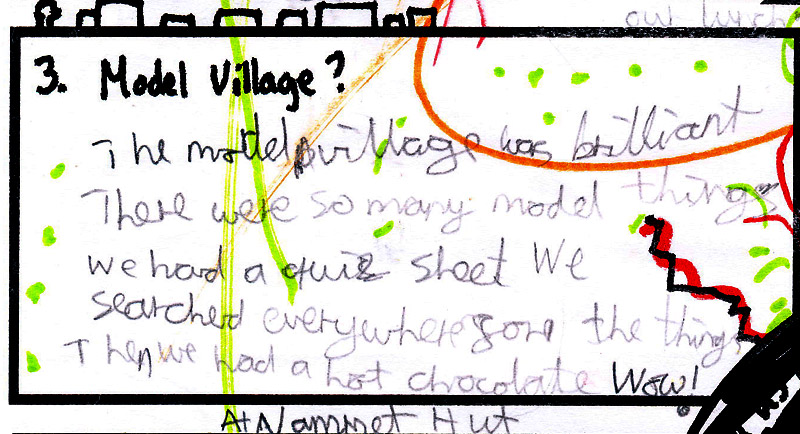 our lunch
3. Model Village?
The model village was brilliant
There were so many model things
we had a quiz sheet We
searched everywhere for the things
Then we had a hot chocolate Wow!
At Nammet Hut